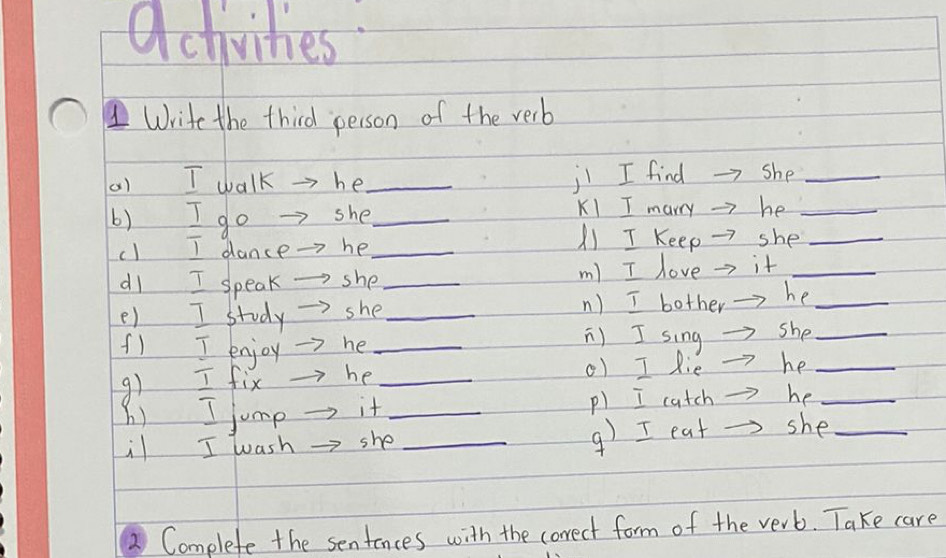 activities:
1 Write the third person of the verb
a) I walk → he______
b) I go → she______
c) I dance → he______
d) I speak → she______
e) I study → she______
f) I enjoy → he______
g) I fix → he______
h) I jump → it______
i) I wash → she______
j) I find → she______
k) I marry → he______
l) I keep → she______
m) I love → it______
n) I bother → he______
ñ) I sing → she______
o) I lie → he______
p) I catch → he______
q) I eat → she______
2 Complete the sentences with the correct form of the verb. Take care